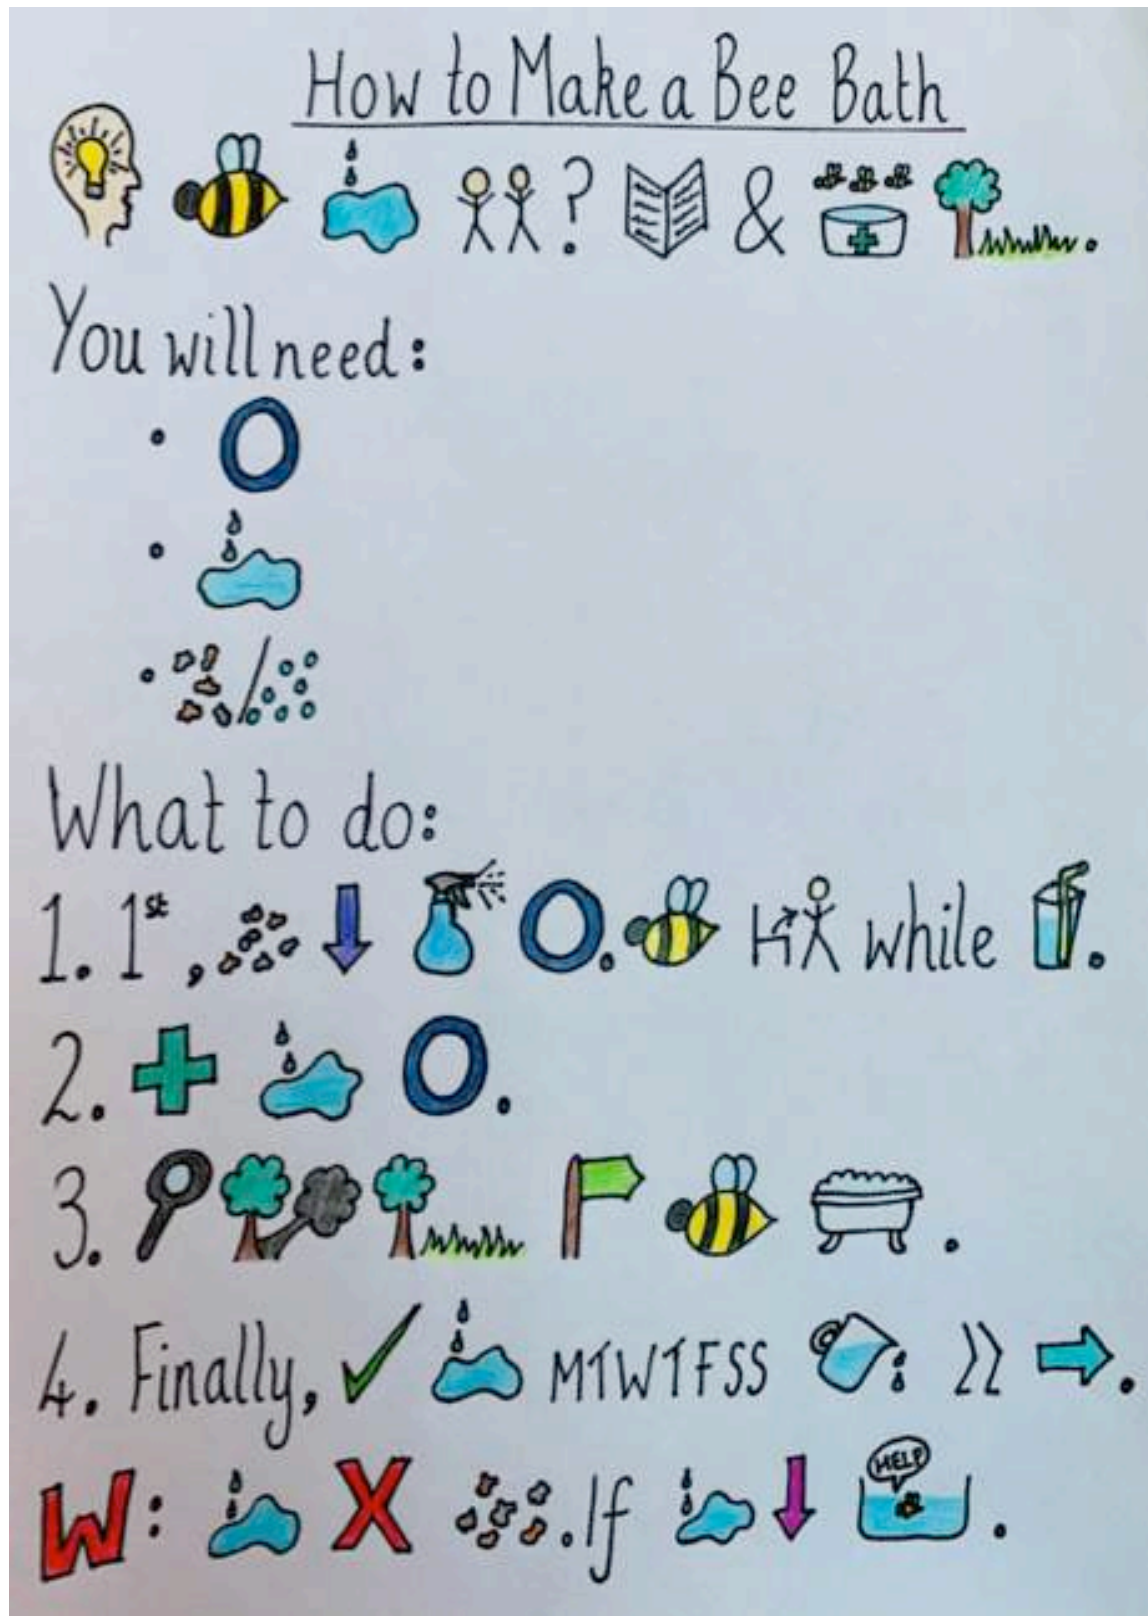 How to Make a Bee Bath
? &
.
You will need:
What to do:
1. 1st, . while .
2. .
3. .
4. Finally, MTWTFSS .
W: X . If .
HELP